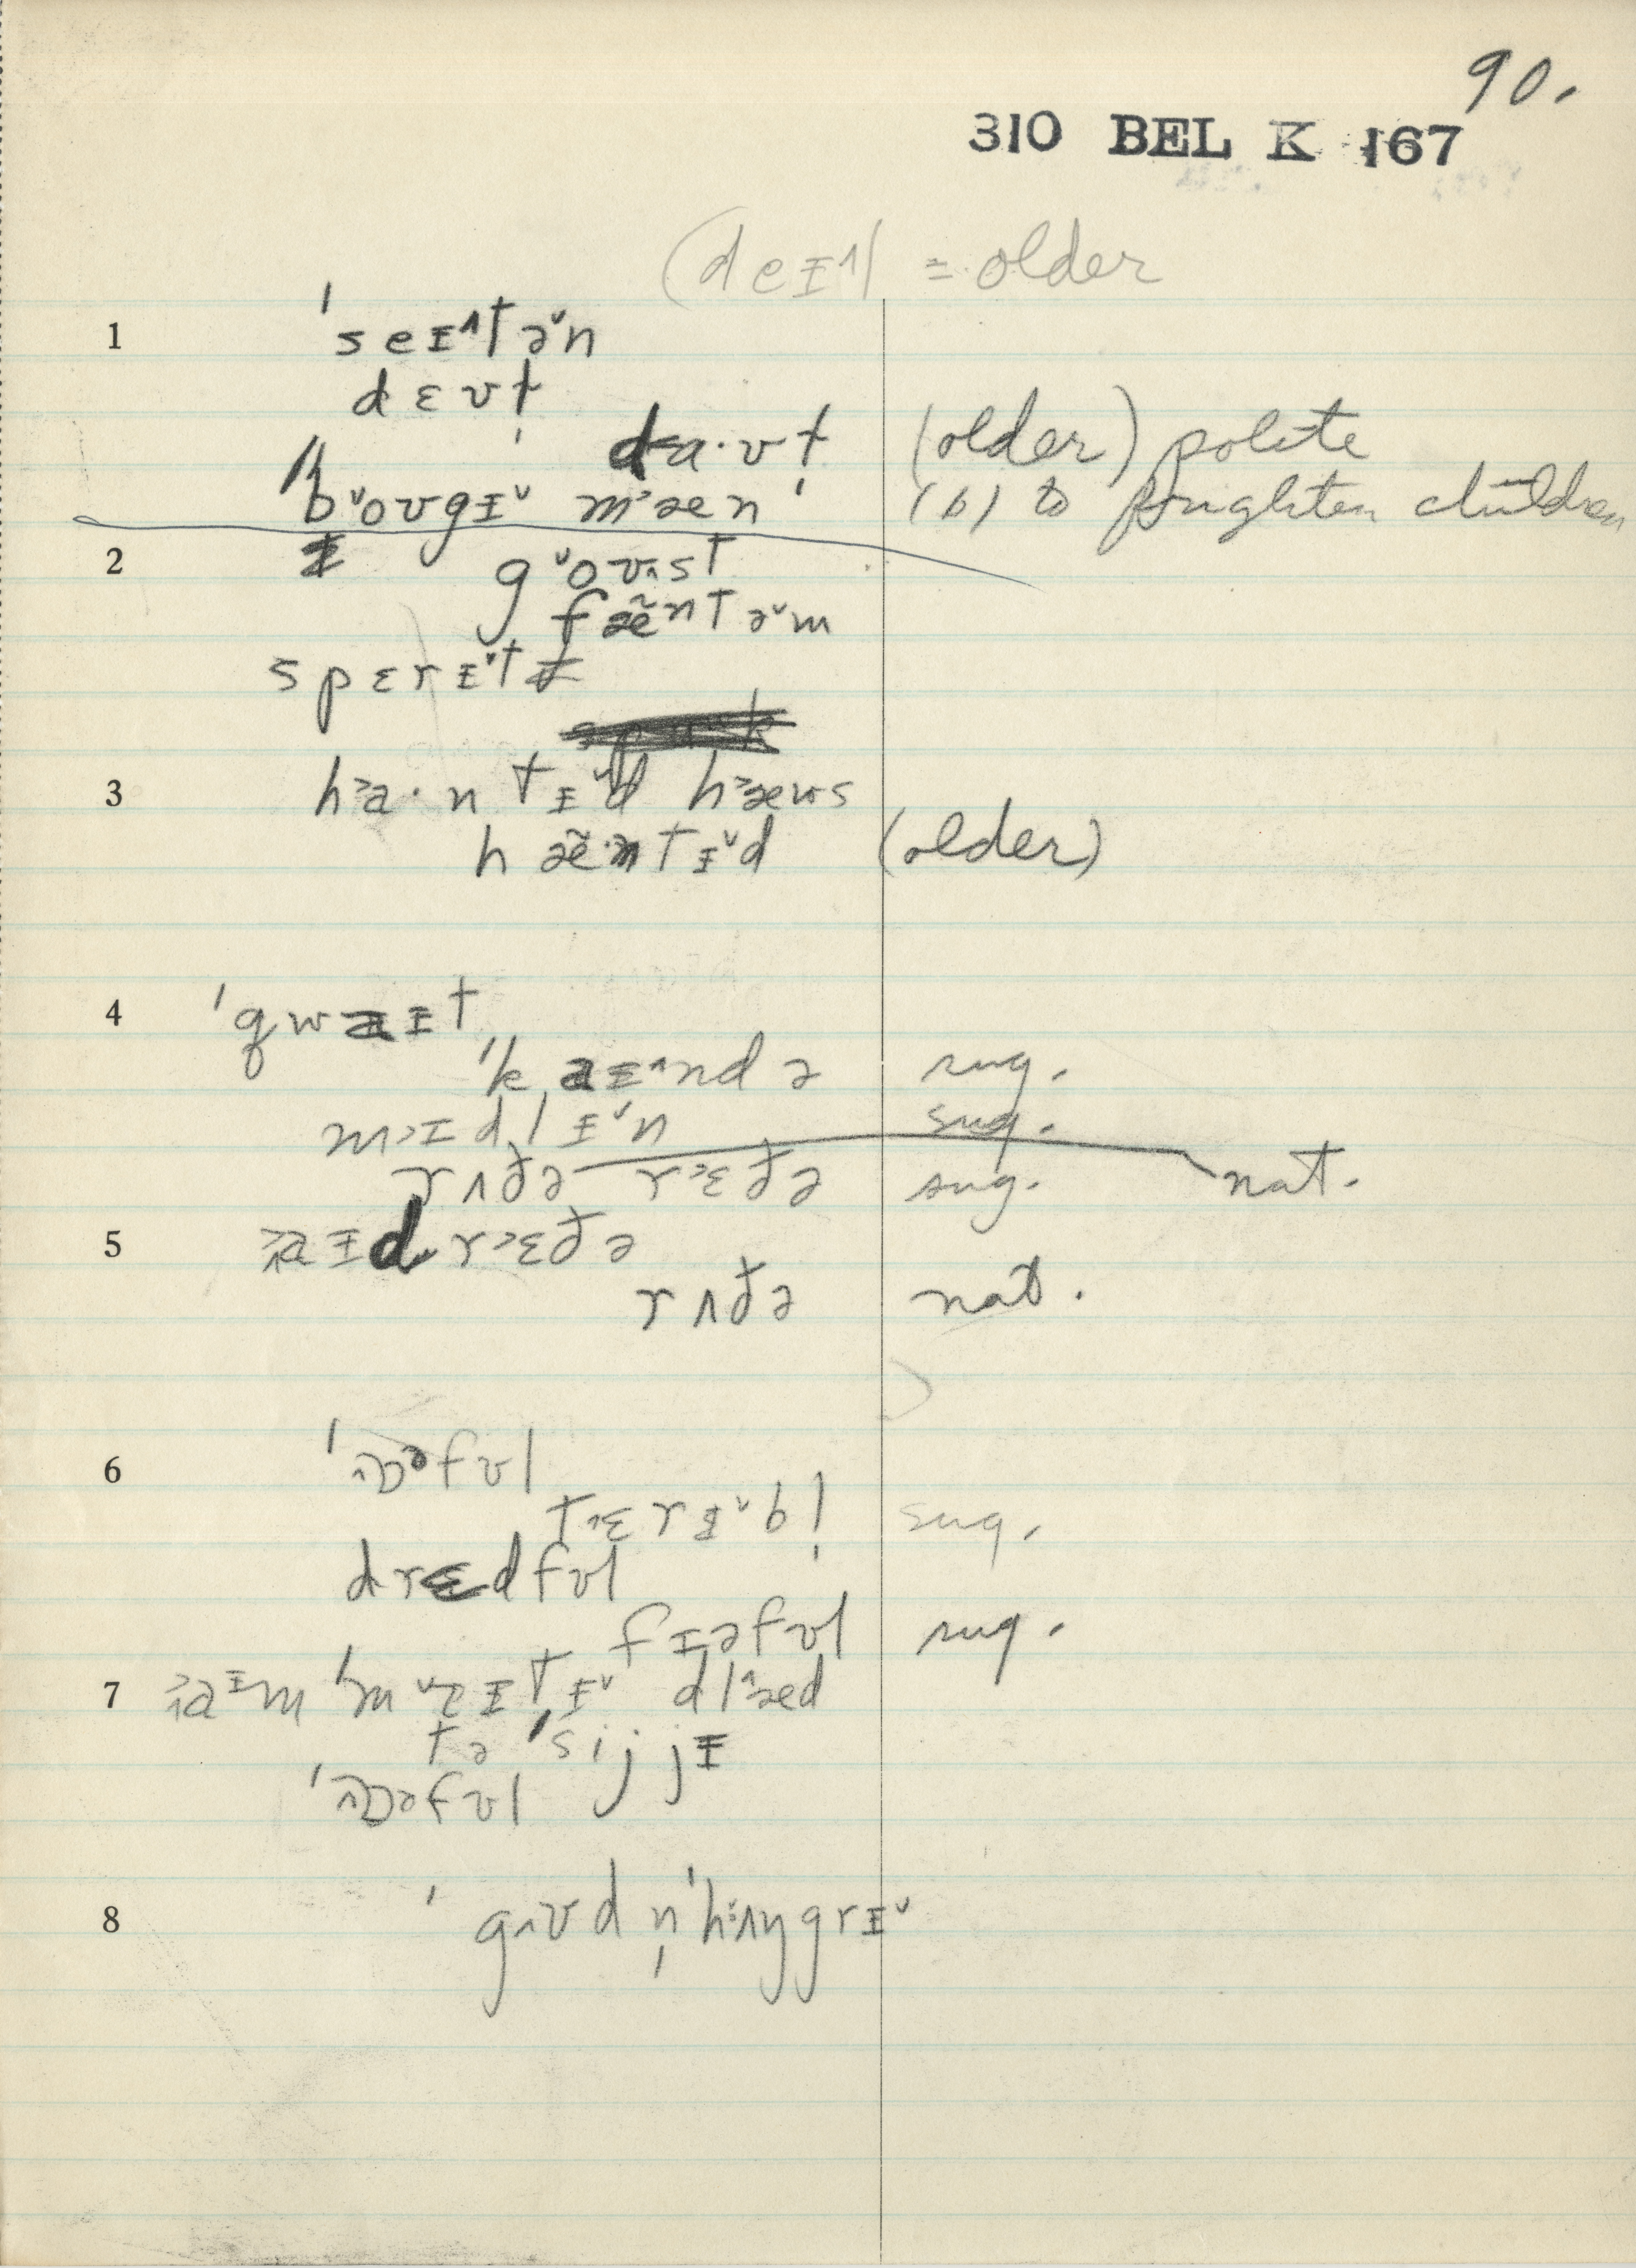 90.
310 BEL K 167
(deɪ˄) = older
1 ˈseɪ˄tə˅n
dɛvt̬
da·vt̬ (older) polite
ˈb˅oʊgɪ˅ m˃æn ˈ (b) to frighten children
2 g˅oʊst
fæ̃ntə˅m
spɛrɪ˅t
3 h˃a·ntɪ˅d h˃æʊs
hæ̃·ntɪ˅d (older)
4 ˈqwaɪt
ˈkaɪ˄ndə sug.
m˃ɪdlɪ˅n sug.
rʌðə r˃ɛðə sug. nat.
5 aɪd r˃ɛðə
rʌðə nat.
6 ˈɒəfʊl
tɛrɪ˅bl̩ sug.
drɛdfʊl
fɪəfʊl sug.
7 aɪm ˈm˅ɛɪtɪ˅ dlæd
tə ˈsijjɪ
ˈɒəfʊl
8 ˈgʊd n̩ˈhʌŋgrɪ˅